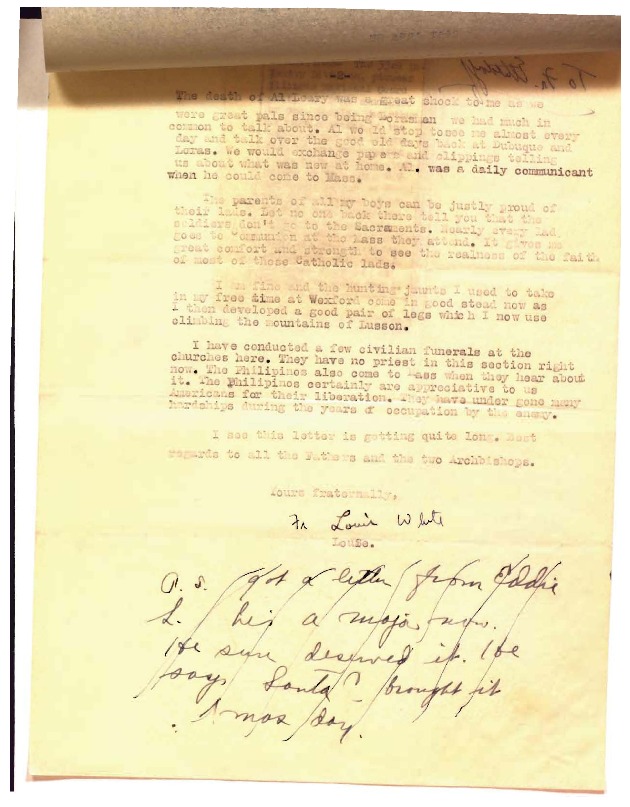 To Fr.
-2-
The death of Al Leary was a great shock to me as we
were great pals since being Dorasman we had much in
common to talk about. Al would stop tosee me almost every
day and talk over the good old days back at Dubuque and
Loras. We would exchange papers and clippings telling
us about what was new at home. Al. was a daily communicant
when he could come to Mass.
The parents of all my boys can be justly proud of
their lads. Let no one back there tell you that the
soldiers don't go to the Sacraments. Nearly every lad
goes to Communion at the Mass they attend. It gives me
great comfort and strength to see the realness of the faith
of most of those Catholic lads.
I am fine and the hunting jaunts I used to take
in my free time at Wexford come in good stead now as
I then developed a good pair of legs which I now use
climbing the mountains of Lusson.
I have conducted a few civilian funerals at the
churches here. They have no priest in this section right
now. The Philipinos also come to Mass when they hear about
it. The Philipinos certainly are appreciative to us
Americans for their liberation. They have under gone many
hardships during the years of occupation by the enemy.
I see this letter is getting quite long. Best
regards to all the Fathers and the two Archbishops.
Yours fraternally,
Fr Louis White
Louie.
P.S. Got a letter from Eddie
L. he's a major now.
He sure deserved it. He
says Santa brought it
Xmas day.